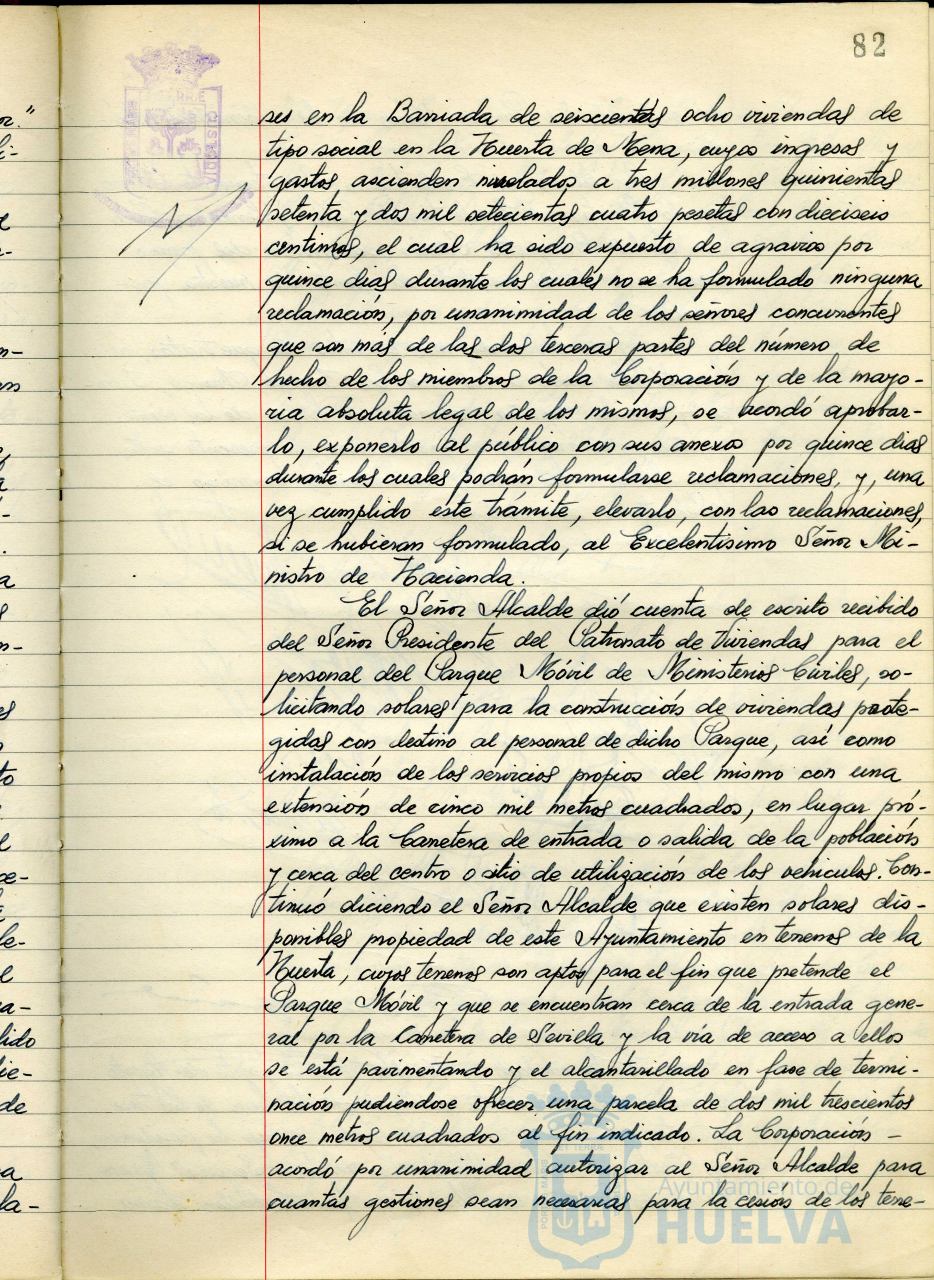 82
ses en la Barriada de seiscientas ocho viviendas de
tipo social en la Huerta de Mena, cuyos ingresos y
gastos, ascienden nivelados a tres millones quinientas
setenta y dos mil setecientas cuatro pesetas con dieciseis
centimos, el cual ha sido expuesto de agravios por
quince dias durante los cuales no se ha formulado ninguna
reclamación, por unanimidad de los señores concurrentes
que son más de las dos terceras partes del número de
hecho de los miembros de la Corporación y de la mayo-
ria absoluta legal de los mismos, se acordó aprobar-
lo, exponerlo al público con sus anexos por quince dias
durante los cuales podrán formularse reclamaciones, y, una
vez cumplido este trámite, elevarlo, con las reclamaciones,
si se hubieran formulado, al Excelentisimo Señor Mi-
nistro de Hacienda.
El Señor Alcalde dió cuenta de escrito recibido
del Señor Presidente del Patronato de Viviendas para el
personal del Parque Móvil de Ministerios Civiles, so-
licitando solares para la construcción de viviendas prote-
gidas con destino al personal de dicho Parque, así como
instalación de los servicios propios del mismo con una
extensión de cinco mil metros cuadrados, en lugar pró-
ximo a la Carretera de entrada o salida de la población
y cerca del centro o sitio de utilización de los vehiculos. Con-
tinuó diciendo el Señor Alcalde que existen solares dis-
ponibles propiedad de este Ayuntamiento en terrenos de la
Huerta, cuyos terrenos son aptos para el fin que pretende el
Parque Móvil y que se encuentran cerca de la entrada gene-
ral por la Carretera de Sevilla y la vía de acceso a ellos
se está pavimentando y el alcantarillado en fase de termi-
nación pudiendose ofrecer una parcela de dos mil trescientos
once metros cuadrados al fin indicado. La Corporación -
acordó por unanimidad autorizar al Señor Alcalde para
cuantas gestiones sean necesarias para la cesión de los terre-
Ayuntamiento de
HUELVA